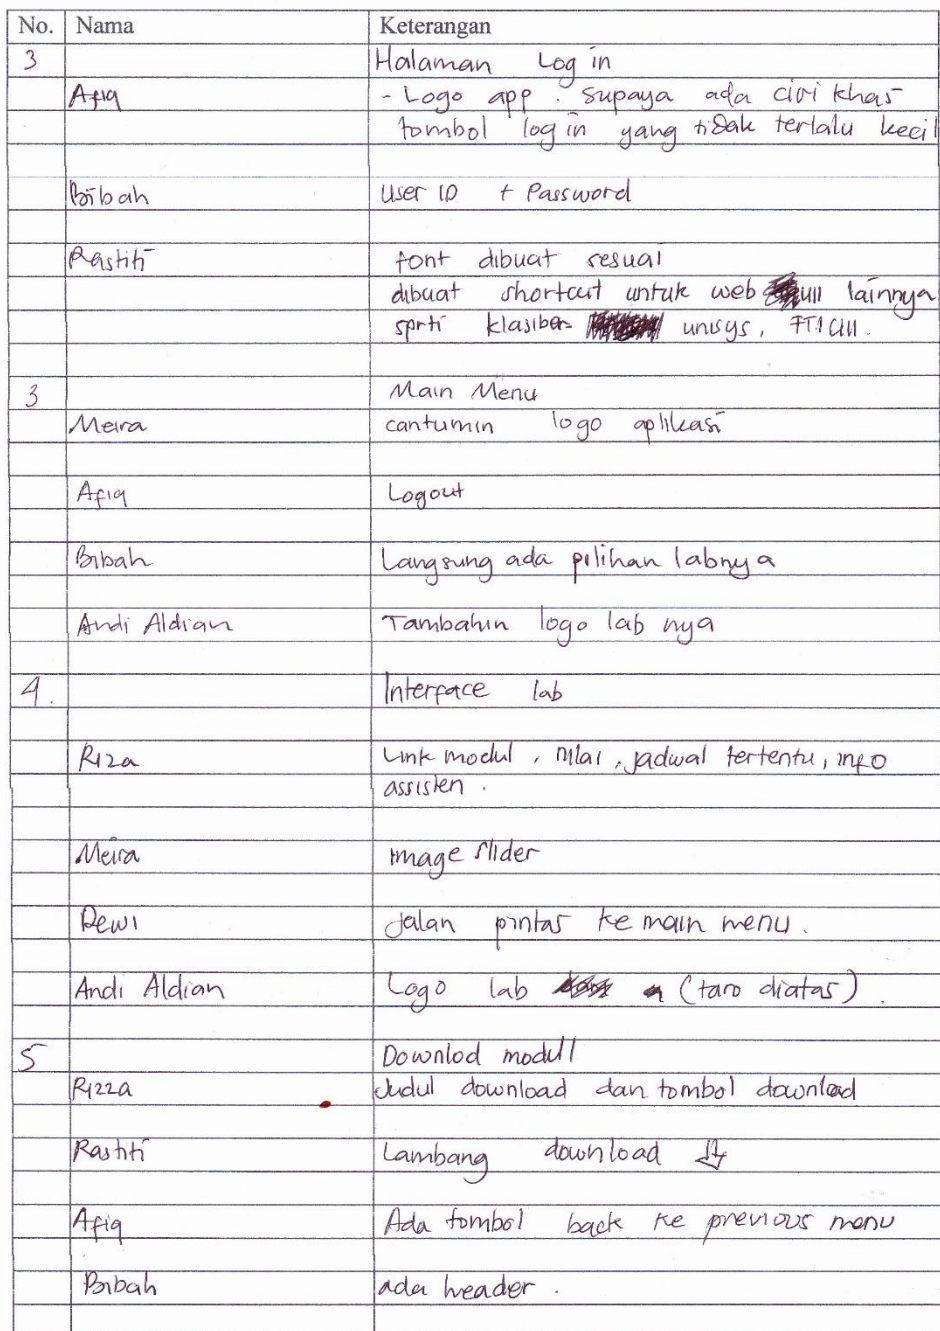 No. Nama Keterangan
3 Halaman Log in
Afiq - Logo app . supaya ada ciri khas
tombol log in yang tidak terlalu kecil
Bibah User ID + Password
Rastiti font dibuat sesuai
dibuat shortcut untuk web UII lainnya
sprti klasiber unisys, FTI UII.
3 Main Menu
Meira cantumin logo aplikasi
Afiq Logout
Bibah Langsung ada pilihan labnya
Andi Aldian Tambahin logo lab nya
4. Interface lab
Riza Link modul, nilai, jadwal tertentu, info
assisten.
Meira image slider
Dewi jalan pintas ke main menu.
Andi Aldian Logo lab (taro diatas).
5 Downlod modul
Rizza Judul download dan tombol download
Rastiti Lambang download
Afiq Ada tombol back ke previous menu
Bibah ada header.